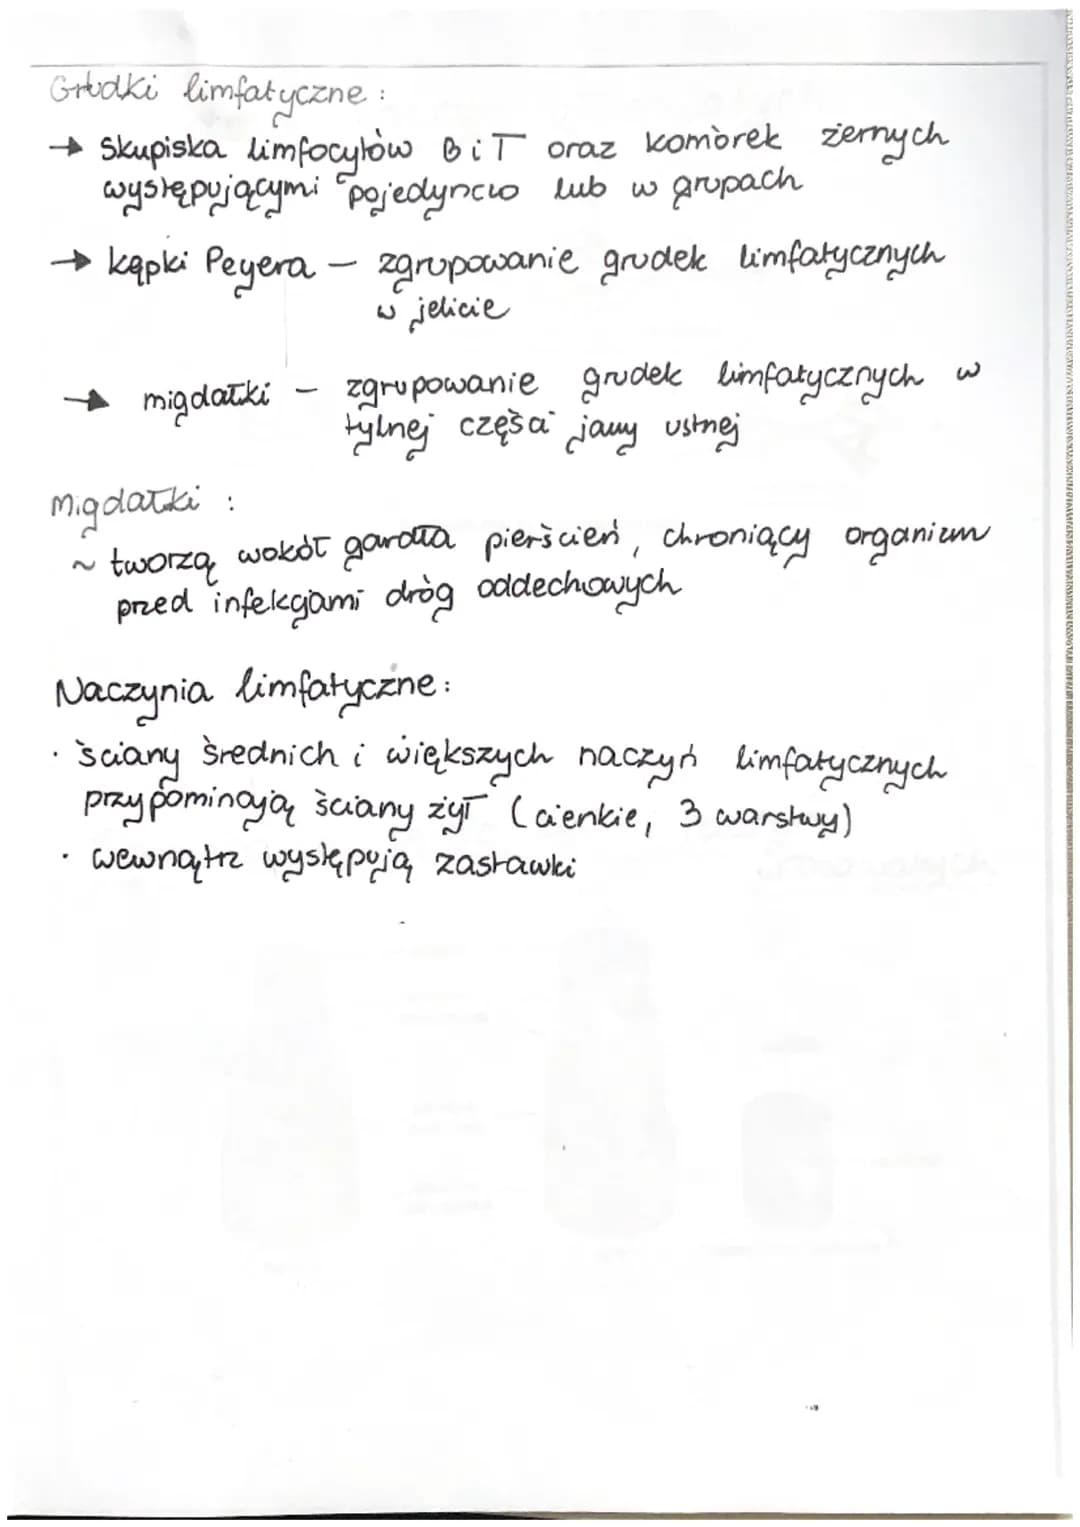 Grudki limfatyczne:
→ Skupiska limfocytów B i T oraz komórek żernych
występującymi pojedynczo lub w grupach
→ kępki Peyera – zgrupowanie grudek limfatycznych
w jelicie
→ migdałki – zgrupowanie grudek limfatycznych w
tylnej części jamy ustnej
Migdałki:
~ tworzą wokół gardła pierścień, chroniący organizm
przed infekcjami dróg oddechowych
Naczynia limfatyczne:
· ściany średnich i większych naczyń limfatycznych
przypominają ściany żył (cienkie, 3 warstwy)
· wewnątrz występują zastawki